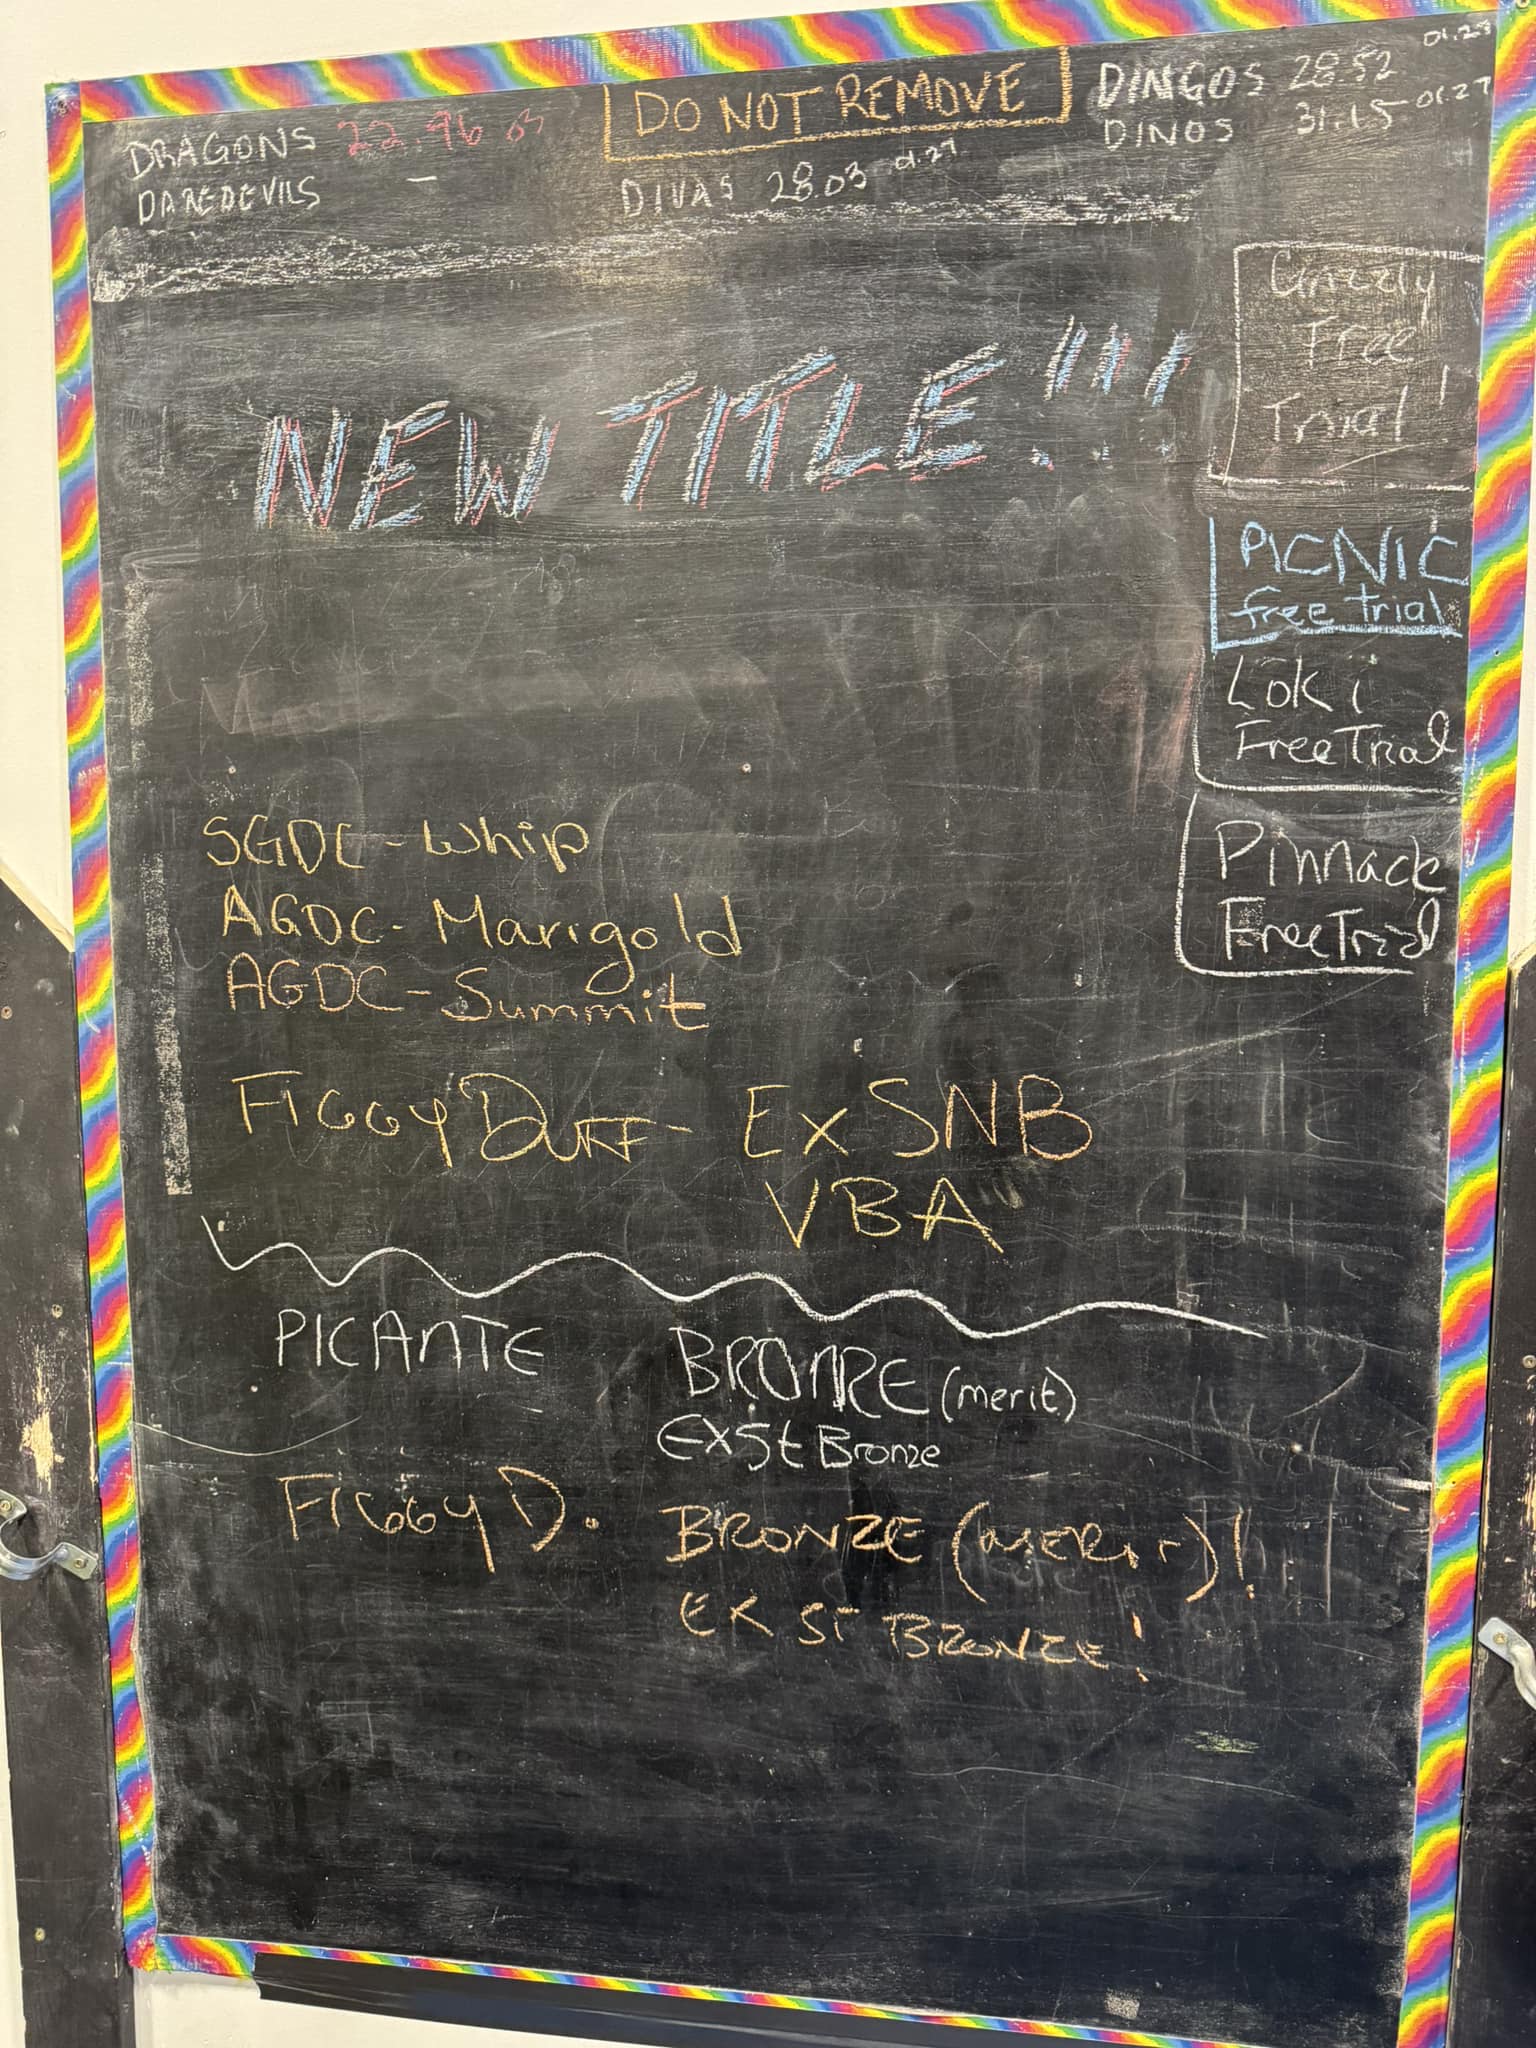 DRAGONS 22.96 03
DAREDEVILS –
DO NOT REMOVE
DIVAS 28.03 01.27
DINGOS 28.52 01.23
DINOS 31.15 01.27
NEW TITLE!!!
Grizzly
Free
Trial!
PICNIC
free trial
Loki
Free Trial
Pinnacle
Free Trial
SGDC - Whip
AGDC - Marigold
AGDC - Summit
FIGGY DUFF - Ex SNB
VBA
PICANTE BRONZE (merit)
EX St Bronze
FIGGY D. BRONZE (MERIT)!
EX ST BRONZE!